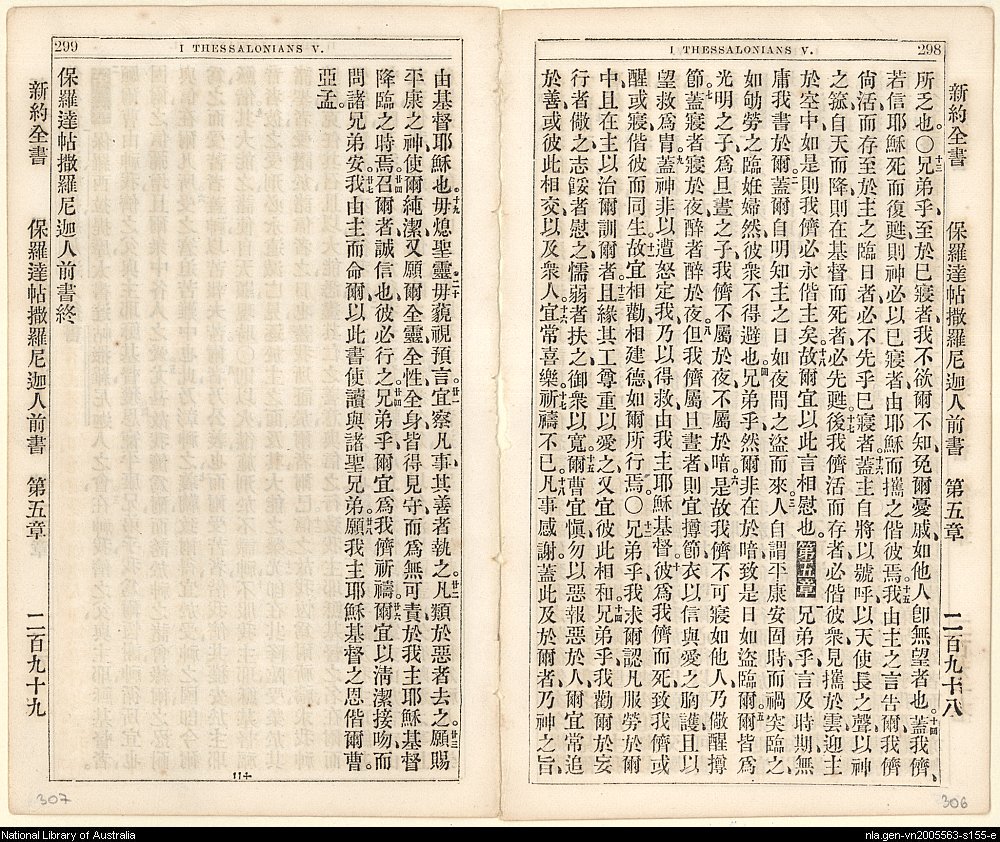 298
I THESSALONIANS V.
新約全書 保羅達帖撒羅尼迦人前書 第五章 二百九十八
所乏也。○十三兄弟乎、至於已寢者、我不欲爾不知、免爾憂戚、如他人卽無望者也。十四蓋我儕、
若信耶穌死而復甦、則神必以已寢者、由耶穌而攜之偕彼焉。十五我由主之言告爾、我儕
尙活而存至於主之臨日者、必不先乎已寢者、十六蓋主自將以號呼、以天使長之聲、以神
之箛、自天而降、則在基督而死者、必先甦、十七後我儕活而存者、必偕彼衆、見攜於雲、迎主
於空中、如是則我儕必永偕主矣。十八故爾宜以此言相慰也。第五章 一兄弟乎、言及時期、無
庸我書於爾、二蓋爾自明知主之日、如夜間之盜而來、三人自謂平康安固時、而禍突臨之、
如劬勞之臨姙婦然、彼衆不得避也。四兄弟乎、然爾非在於暗、致是日如盜臨爾、五爾皆爲
光明之子、爲旦晝之子、我儕不屬於夜、不屬於暗、六是故我儕不可寢如他人、乃儆醒撙
節、七蓋寢者寢於夜、醉者醉於夜、八但我儕屬旦晝者、則宜撙節、衣以信與愛之胸護、且以
望救爲冑、九蓋神非以遭怒定我、乃以得救由我主耶穌基督、十彼爲我儕而死、致我儕或
醒或寢、偕彼而同生、十一故宜相勸、相建德、如爾所行焉。○十二兄弟乎、我求爾認凡服勞於爾
中、且在主以治爾訓爾者、十三且緣其工、尊重以愛之、又宜彼此相和、十四兄弟乎、我勸爾於妄
行者儆之、志餒者慰之、懦弱者扶之、御衆以寬、十五爾曹宜愼、勿以惡報惡於人、爾宜常追
於善、或彼此相交、以及衆人、十六宜常喜樂、十七祈禱不已、十八凡事感謝、蓋此及於爾者、乃神之旨、
299
I THESSALONIANS V.
由基督耶穌也。十九毋熄聖靈、二十毋藐視預言、廿一宜察凡事、其善者執之、廿二凡類於惡者去之、廿三願賜
平康之神、使爾純潔、又願爾全靈全性全身、皆得見守、而爲無可責、於我主耶穌基督
降臨之時焉。廿四召爾者誠信也、彼必行之。廿五兄弟乎、爾宜爲我儕祈禱、廿六爾宜以淸潔接吻而
問諸兄弟安、廿七我由主而命爾、以此書使讀與諸聖兄弟、廿八願我主耶穌基督之恩偕爾曹、
亞孟。
保羅達帖撒羅尼迦人前書終
新約全書 保羅達帖撒羅尼迦人前書 第五章 二百九十九
306
307
National Library of Australia
nla.gen-vn2005563-s155-e